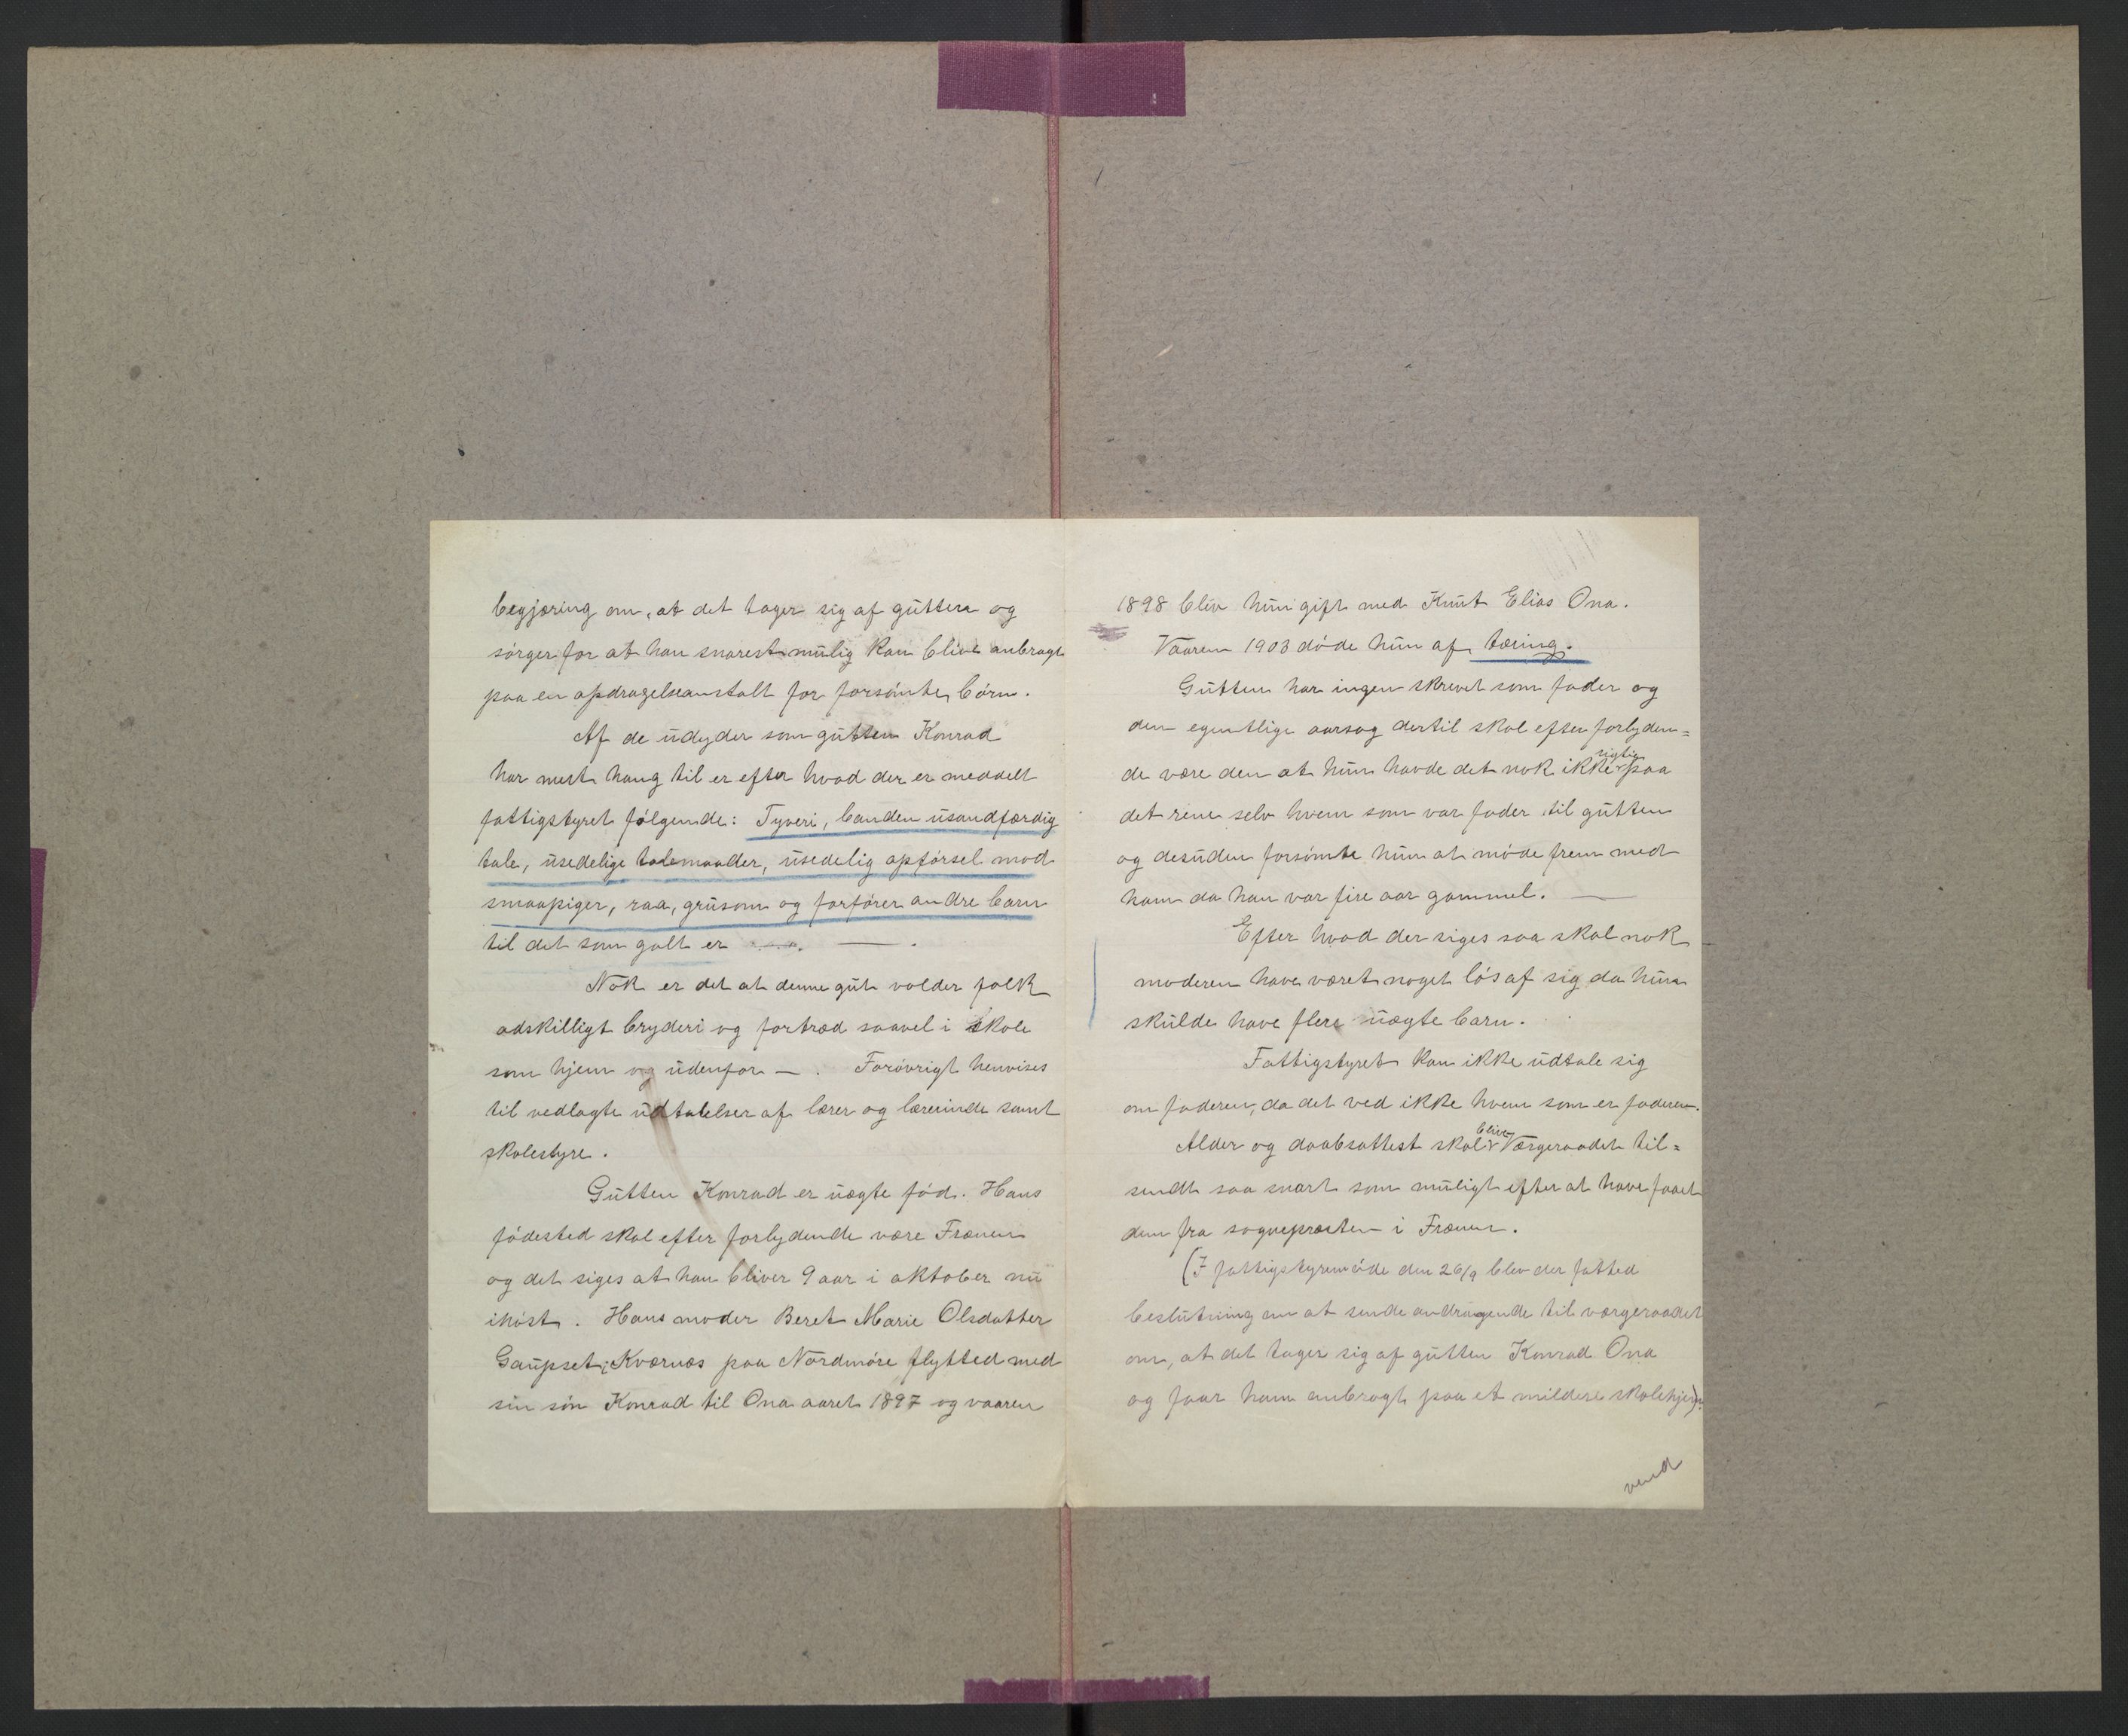 begjæring om, at det tager sig af gutten og
sörger for at han snarest mulig kan blive anbragt
paa en opdragelseanstalt for forsömte börn.
Af de udyder som gutten Konrad
har mest hang til er efter hvad der er meddelt
fattigstyret fölgende: Tyveri, banden usandfærdig
tale, usedelige talemaader, usedelig opförsel mod
smaapiger, raa, grusom og forförer andre barn
til det som galt er — .
Nok er det at denne gut volder folk
adskilligt bryderi og fortræd saavel i skole
som hjem og udenfor — . Forövrigt henvises
til vedlagte udtalelser af lærer og lærerinde samt
skolestyre.
Gutten Konrad er uægte föd. Hans
födested skal efter forlydende være Frænen
og det siges at han bliver 9 aar i oktober nu
ihöst. Hans moder Beret Marie Olsdatter
Gaupset i Kværnes paa Nordmöre flytted med
sin sön Konrad til Ona aaret 1897 og vaaren
1898 blev hun gift med Knut Elias Ona.
Vaaren 1903 döde hun af tæring.
Gutten har ingen skrevet som fader og
den egentlige aarsag dertil skal efter forlyden=
de være den at hun havde det nok ikke rigtig paa
det rene selv hvem som var fader til gutten
og desuden forsömte hun at möde frem med
ham da han var fire aar gammel. —
Efter hvad der siges saa skal nok
moderen have været noget lös af sig da hun
skulde have flere uægte barn.
Fattigstyret kan ikke udtale sig
om faderen, da det ved ikke hvem som er faderen.
Alder og daabsattest skal blive Værgeraadet til=
sendt saa snart som muligt efter at have faaet
dem fra sognepræsten i Frænen.
(I fattigstyremöde den 26/9 blev der fatted
beslutning om at sende andragende til værgeraadet
om, at det tager sig af gutten Konrad Ona
og faar ham anbragt paa et mildere skolehjem).
vend